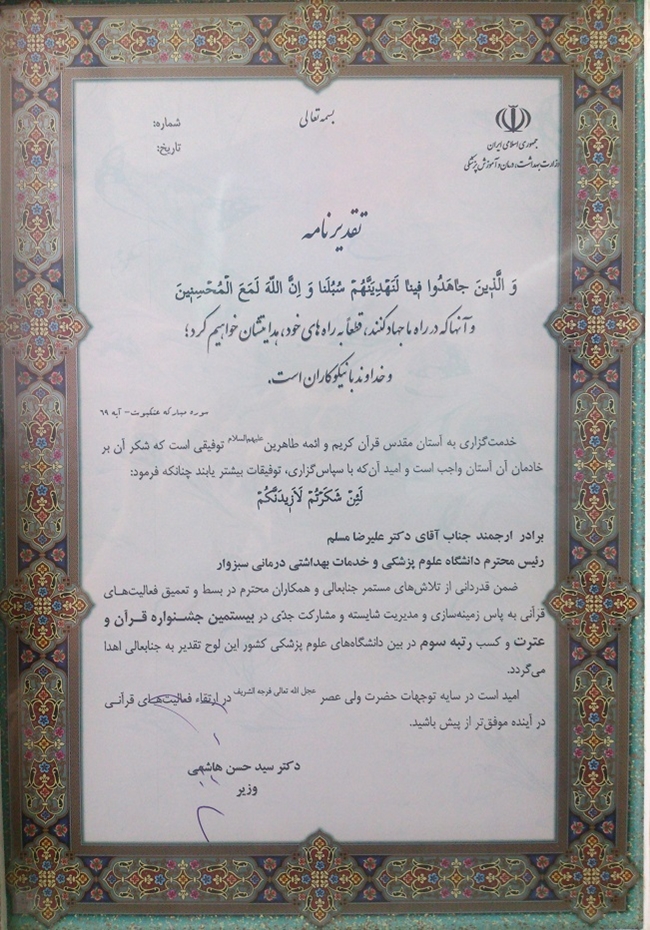 بسمه تعالی
جمهوری اسلامی ایران
وزارت بهداشت، درمان و آموزش پزشکی
شماره:
تاریخ:
تقدیرنامه
وَ الَّذینَ جاهَدُوا فینا لَنَهْدِیَنَّهُمْ سُبُلَنا وَ اِنَّ اللّهَ لَمَعَ الْمُحْسِنین
و آنها که در راه ما جهاد کنند، قطعاً به راه های خود، هدایتشان خواهیم کرد؛
و خداوند با نیکوکاران است.
سوره مبارکه عنکبوت- آیه ۶۹
خدمت‌گزاری به آستان مقدس قرآن کریم و ائمه طاهرین علیهم‌السلام توفیقی است که شکر آن بر
خادمان آن آستان واجب است و امید آن‌که با سپاس‌گزاری، توفیقات بیشتر یابند چنانکه فرمود:
لَئِنْ شَکَرْتُمْ لَاَزیدَنَّکُمْ
برادر ارجمند جناب آقای دکتر علیرضا مسلم
رئیس محترم دانشگاه علوم پزشکی و خدمات بهداشتی درمانی سبزوار
ضمن قدردانی از تلاش‌های مستمر جنابعالی و همکاران محترم در بسط و تعمیق فعالیت‌هـای
قرآنی به پاس زمینه‌سازی و مدیریت شایسته و مشارکت جدّی در بیستمین جشنـواره قـرآن و
عترت و کسب رتبه سوم در بین دانشگاه‌های علوم پزشکی کشور این لوح تقدیر به جنابعالی اهدا
می‌گردد.
امید است در سایه توجهات حضرت ولی عصر عجل الله تعالی فرجه الشریف در ارتقاء فعالیت‌هـای قرآنـی
در آینده موفق‌تر از پیش باشید.
دکتر سید حسن هاشمی
وزیر